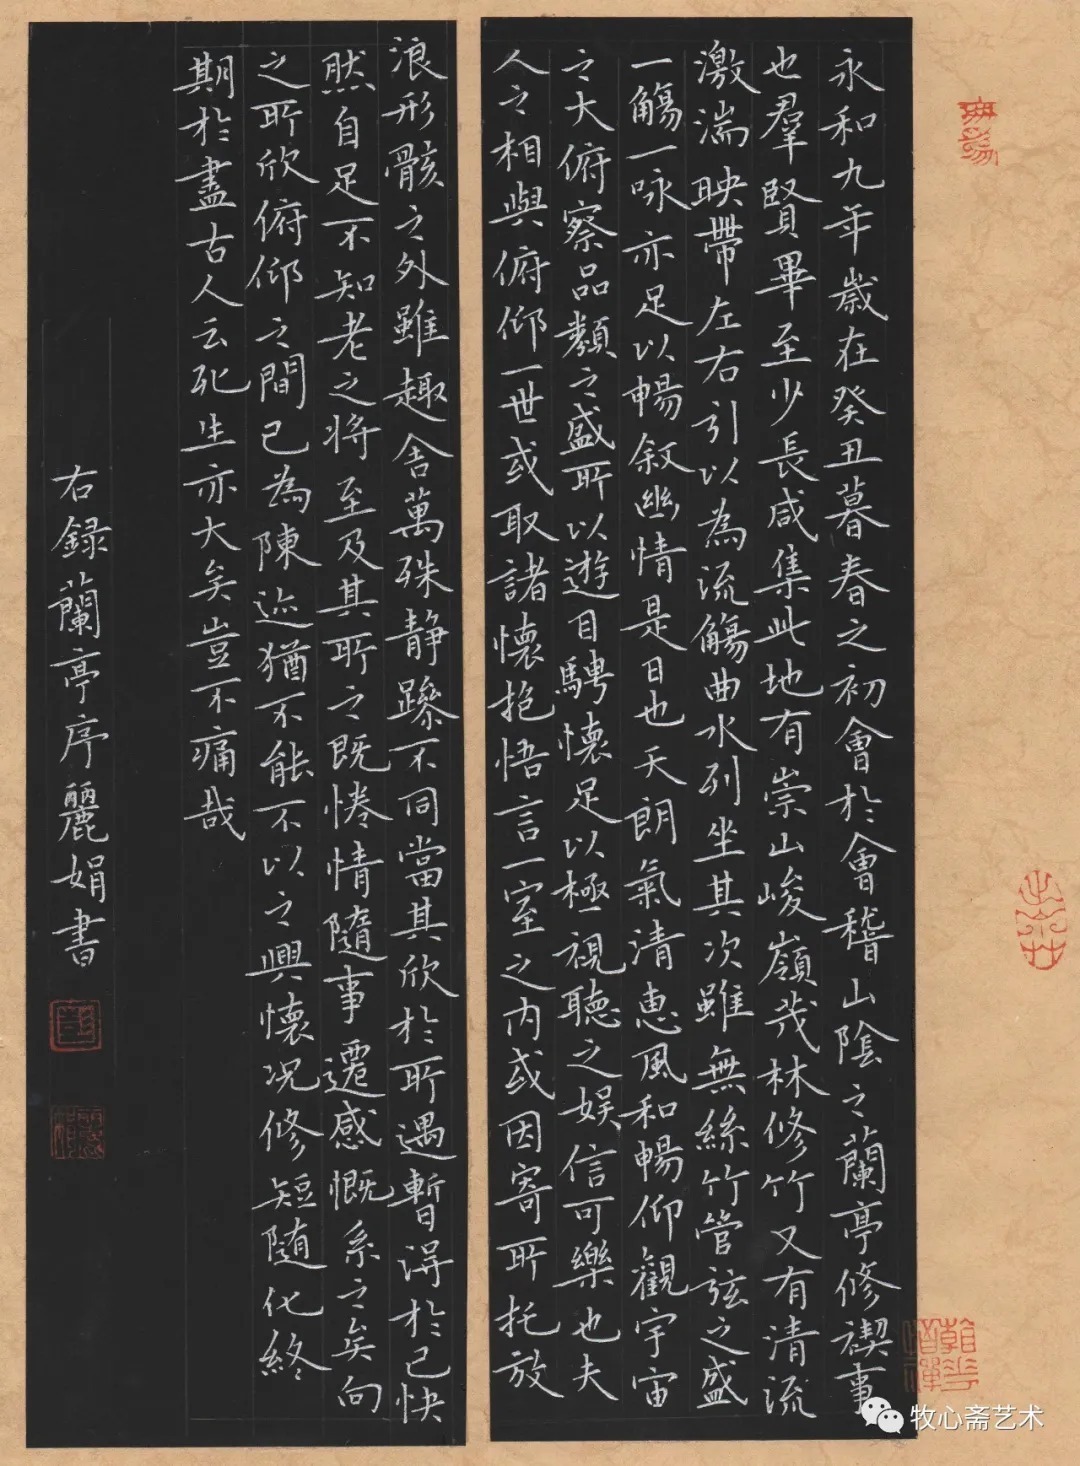 永和九年歲在癸丑暮春之初會於會稽山陰之蘭亭修禊事
也羣賢畢至少長咸集此地有崇山峻嶺茂林修竹又有清流
激湍映帶左右引以為流觴曲水列坐其次雖無絲竹管弦之盛
一觴一咏亦足以暢敘幽情是日也天朗氣清惠風和暢仰觀宇宙
之大俯察品類之盛所以遊目騁懷足以極視聽之娛信可樂也夫
人之相與俯仰一世或取諸懷抱悟言一室之內或因寄所托放
浪形骸之外雖趣舍萬殊静躁不同當其欣於所遇暫得於己快
然自足不知老之將至及其所之既惓情隨事遷感慨系之矣向
之所欣俯仰之間已為陳迹猶不能不以之興懷况修短隨化終
期於盡古人云死生亦大矣豈不痛哉
右録蘭亭序麗娟書
彭
麗娟
牧心斋艺术